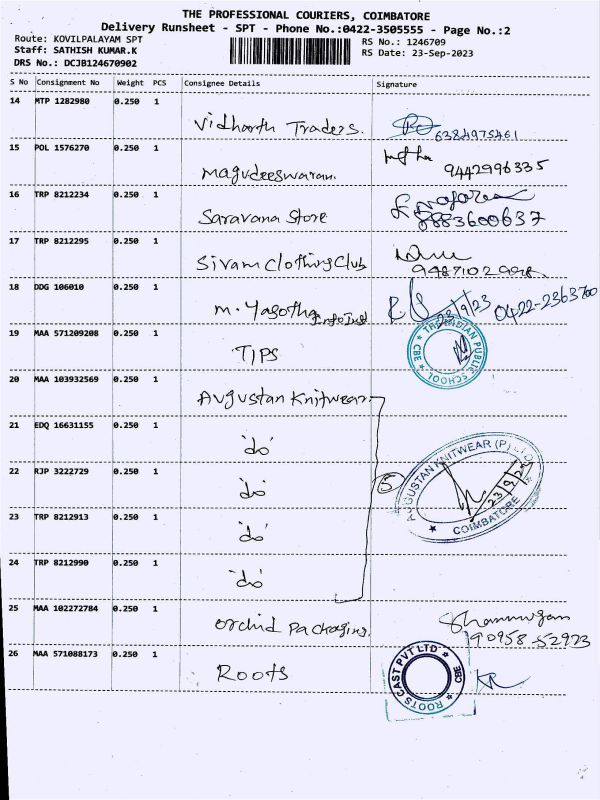 THE PROFESSIONAL COURIERS, COIMBATORE
Delivery Runsheet - SPT - Phone No.:0422-3505555 - Page No.:2
Route: KOVILPALAYAM SPT
RS No.: 1246709
Staff: SATHISH KUMAR.K
RS Date: 23-Sep-2023
DRS No.: DCJB124670902
S No Consignment No Weight PCS Consignee Details Signature
14 MTP 1282980 0.250 1 Vidharth Traders. 6384975461
15 POL 1576270 0.250 1 Magudeeswaran. 9442996335
16 TRP 8212234 0.250 1 Saravana Store 8883600637
17 TRP 8212295 0.250 1 Sivam Clothing Club
18 DDG 106010 0.250 1 M. Yasotha 23/9/23 0422-2363700
19 MAA 571209208 0.250 1 TIPS THE INDIAN PUBLIC SCHOOL ★ CBE ★
20 MAA 103932569 0.250 1 Augustan Knitwear
21 EDQ 16631155 0.250 1 "do"
22 RJP 3222729 0.250 1 "do" 5 AUGUSTAN KNITWEAR (P) LTD ★ COIMBATORE ★
23 TRP 8212913 0.250 1 "do"
24 TRP 8212990 0.250 1 "do"
25 MAA 102272784 0.250 1 Orchid Packaging. Shanmugam 90958 52923
26 MAA 571088173 0.250 1 Roots ROOTS CAST PVT LTD ★ CBE ★